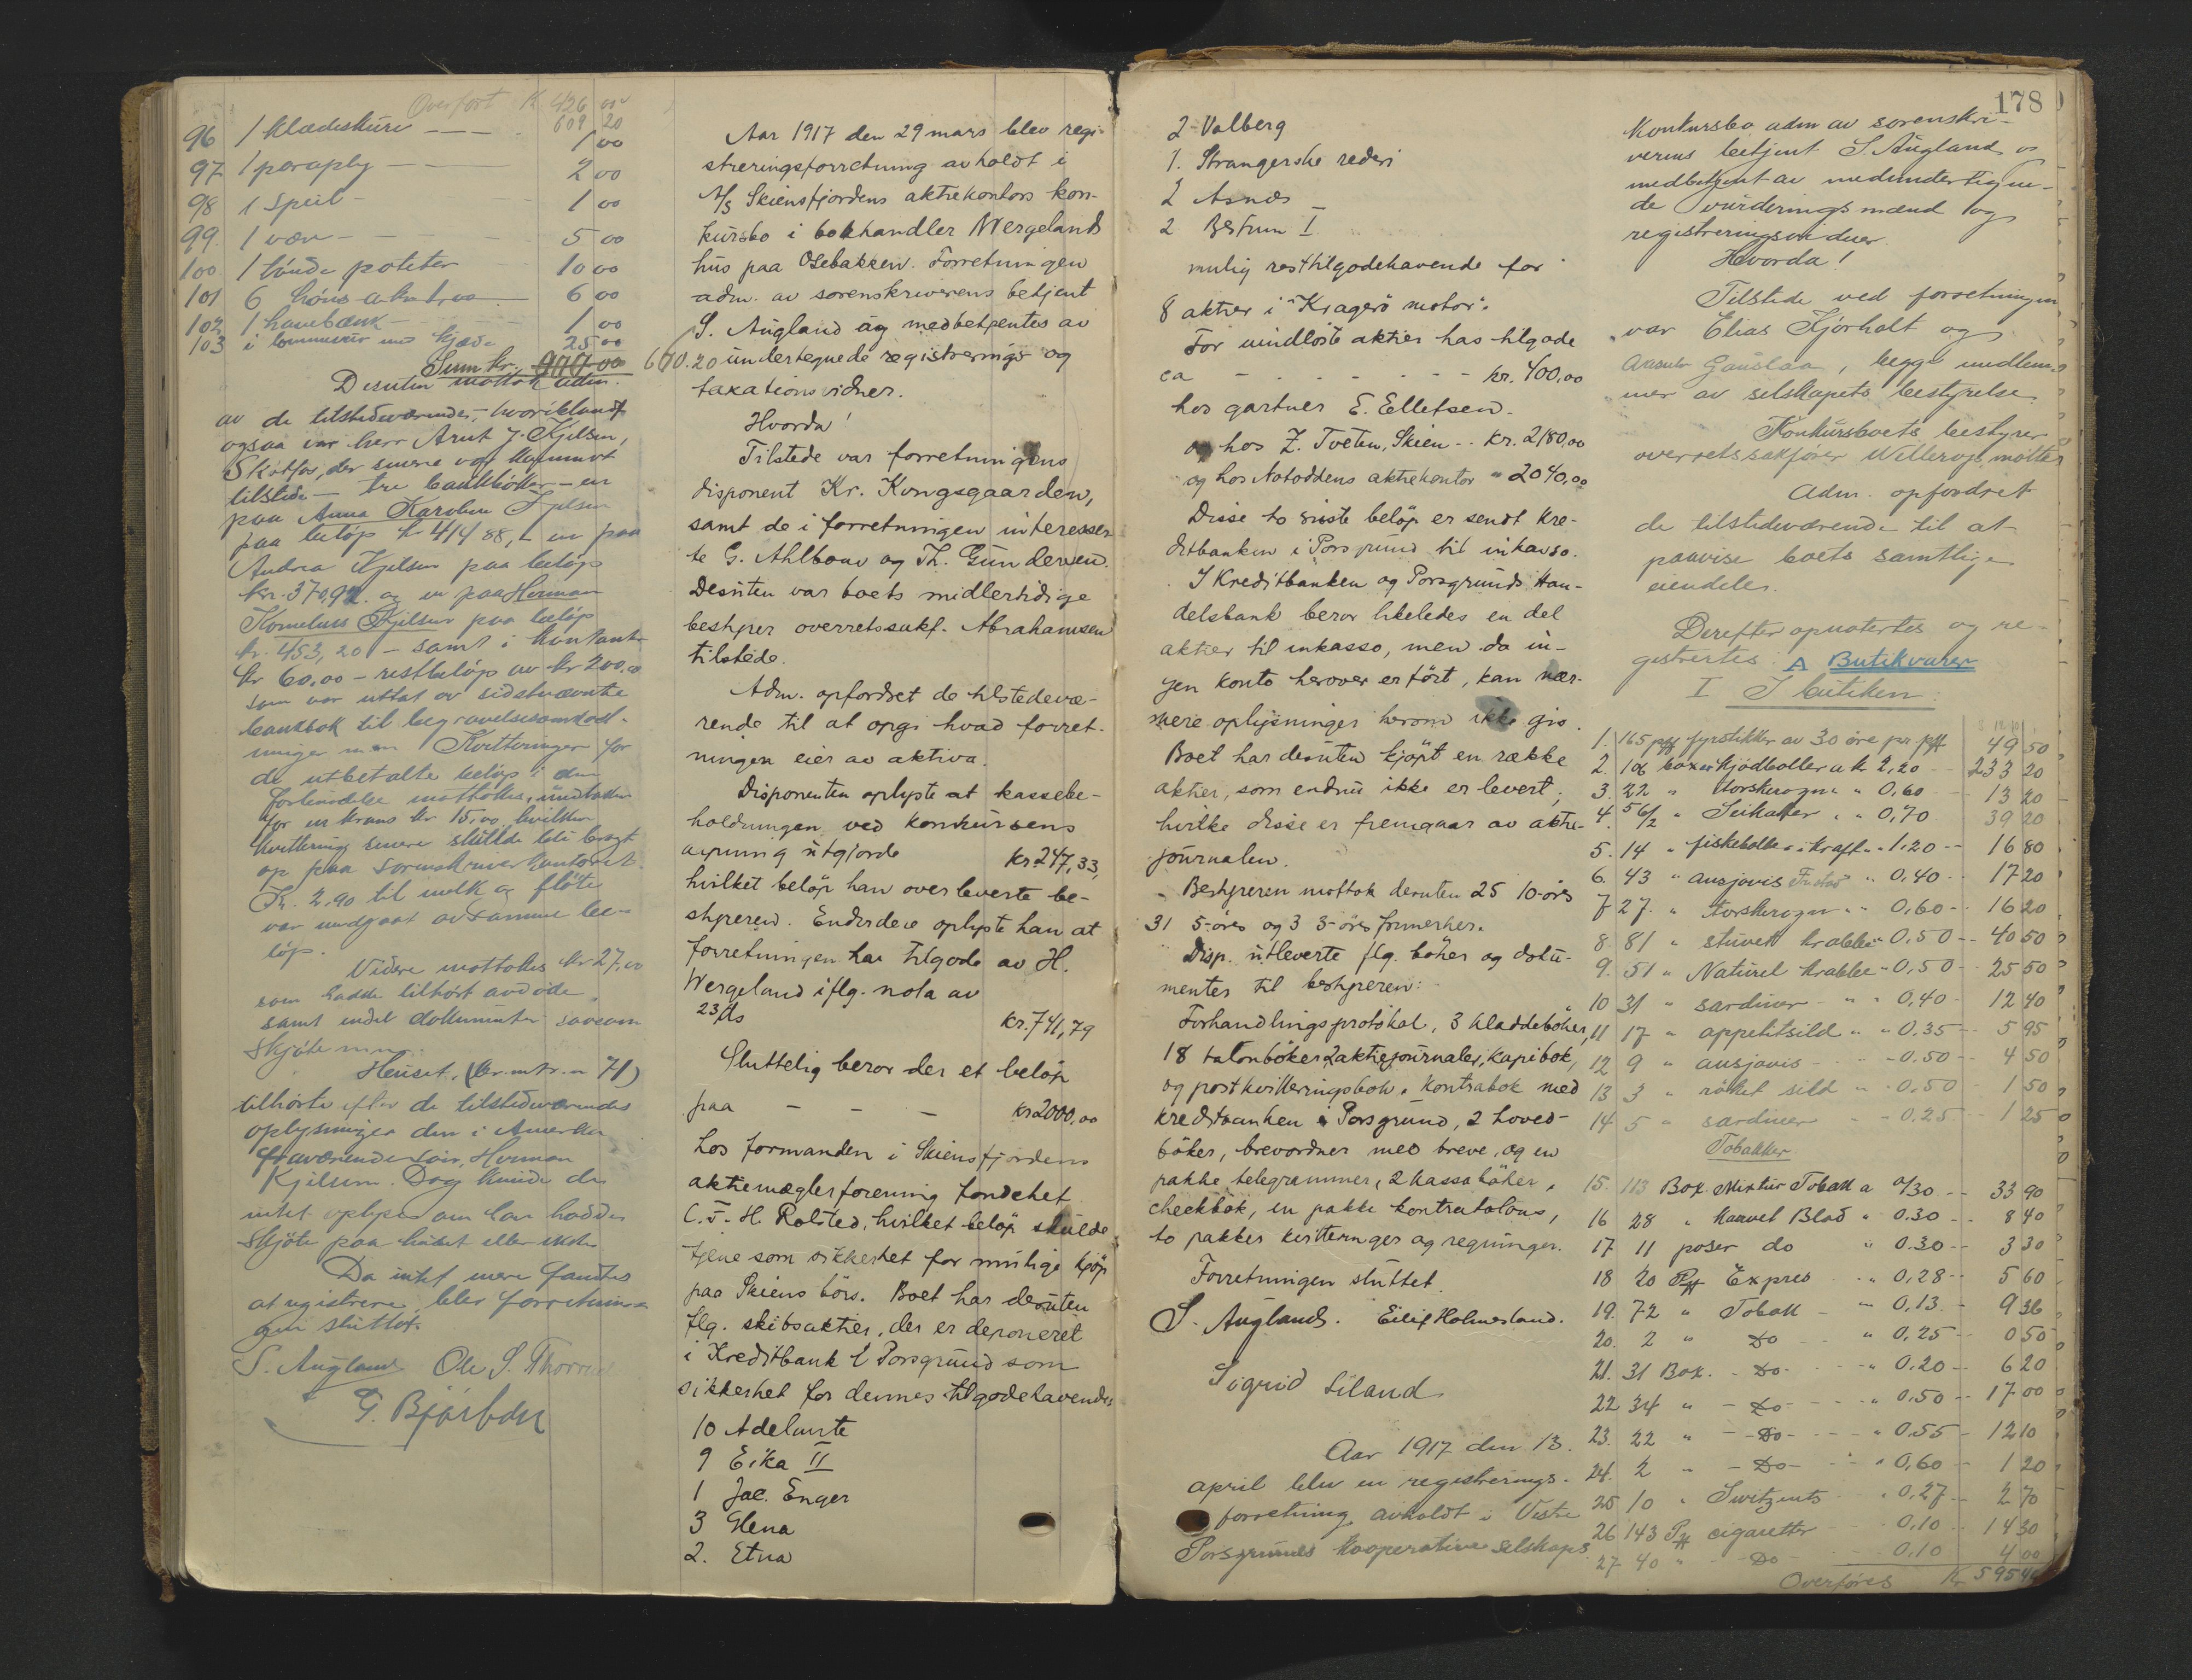 Overført K. 426 00
609 20
96 1 klædeskurv 1 00
97 1 paraply 2 00
98 1 speil 1 00
99. 1 væv 5 00
100 1 tønde poteter 10 00
101 6 høns a kr. 1,00 6 00
102 1 havebænk 1 00
103 1 lommeur med kjæde 25 00
Sum kr. 670.20
Desuten mottok adm.
av de tilstedeværende, hvoriblandt
ogsaa var herr Arnt J. Kjelsen,
Skotfos, der senere var kommet
tilstede - tre bankbøker - en
paa Anna Karoline Kjelsen
paa beløp kr 414 88, - en paa
Andrea Kjelsen paa beløp
kr. 370,92. og en paa Herman
Kornelius Kjelsen paa beløp
kr. 453,20 - samt i kontant
kr 60,00 - restbeløp av kr 200,00
som var uttat av sidstnævnte
bankbok til begravelsesomkost-
ninger m.m. Kvitteringer for
de utbetalte beløp i den
forbindelse mottokes, undtatt
for en krans kr 15,00, hvilken
kvittering senere skulde bli bragt
op paa sorenskriverkontoret.
Kr. 2,90 til melk og fløte
var medgaat av samme be-
løp.
Videre mottokes kr 27,00
som hadde tilhørt avdøde,
samt endel dokumenter saasom
skjøte m.m.
Huset, (br.m.tr. 71)
tilhørte efter de tilstedeværendes
oplysninger den i Amerika
fraværende søn, Herman
Kjelsen. Dog kunde de
intet oplyse om han hadde
skjøte paa huset eller ikke.
Da intet mere fandtes
at registrere, blev forretnin-
gen sluttet.
S. Augland Ole S. Thorrud
G. Bjørbæk
Aar 1917 den 29 mars blev regi-
streringsforretning avholdt i
A/S Skiensfjordens aktiekontors kon-
kursbo i bokhandler Wergelands
hus paa Osebakken. Forretningen
adm. av sorenskriverens betjent
S. Augland og medbetjentes av
undertegnede registrerings og
taxationsvidner.
Hvorda!
Tilstede var forretningens
disponent Kr. Kongsgaarden,
samt de i forretningen interesser-
te G. Ahlbom og Th. Gundersen.
Desuten var boets midlertidige
bestyrer overretssakf. Abrahamsen
tilstede.
Adm. opfordret de tilstedevæ-
rende til at opgi hvad forret-
ningen eier av aktiva.
Disponenten oplyste at kassebe-
holdningen ved konkursens
aapning utgjorde kr 247,33,
hvilket beløp han overleverte be-
styreren. Endvidere oplyste han at
forretningen har tilgode av H.
Wergeland iflg. nota av
23/ds kr. 741,79
Sluttelig beror der et beløp
paa - - - kr 2000,00
hos formanden i Skiensfjordens
aktiemæglerforening fondchef
C. F. H. Rolsted, hvilket beløp skulde
tjene som sikkerhet for mulige kjøp
paa Skiens børs. Boet har desuten
flg. skibsaktier, der er deponeret
i Kreditbank i Porsgrund som
sikkerhet for dennes tilgodehavende
10 Adelante
9 Eika II
1 Jac. Enger
3 Glena
2. Etna
2 Valberg
1. Strangerske rederi
2 Asnæs
2 Bestum I
mulig resttilgodehavende for
8 aktier i "Kragerø motor".
For uindløste aktier has tilgode
ca - - - kr. 400,00
hos gartner E. Ellefsen.
og hos Z. Tveten, Skien - kr. 2180,00
og hos Notoddens aktiekontor " 2040,00
Disse to siste beløp er sendt Kre-
ditbanken i Porsgrund til inkasso.
I Kreditbanken og Porsgrunds Han-
delsbank beror likeledes en del
aktier til inkasso, men da in-
gen konto herover er ført, kan nær-
mere oplysninger herom ikke gis.
Boet har desuten kjøpt en række
aktier, som endnu ikke er levert;
hvilke disse er fremgaar av aktie-
journalen.
Bestyreren mottok desuten 25 10-øres
31 5-øres og 3 3-øres frimerker.
Disp. utleverte flg. bøker og doku-
menter til bestyreren:
Forhandlingsprotokol, 3 kladdebøker,
18 talonbøker, 2 aktiejournaler, kapibok,
og postkvitteringsbok. Kontrabok med
kreditbanken i Porsgrund, 2 hoved-
bøker, brevordner med breve, og en
pakke telegrammer, 2 kassabøker,
checkbok, en pakke kontratalons,
to pakker kvitteringer og regninger.
Forretningen sluttet.
S. Augland. Eilif Holmesland.
Sigrid Liland
Aar 1917 den 13.
april blev en registrerings-
forretning avholdt i Vestre
Porsgrunds kooperative selskaps
178
konkursbo adm av sorenskri-
verens betjent S. Augland og
medbetjent av medundertegne-
de vurderingsmænd og
registreringsvidner.
Hvorda!
Tilstede ved forretningen
var Elias Kjørholt og
Gauslaa, begge medlem-
mer av selskapets bestyrelse.
Konkursboets bestyrer
overretssakfører Willerup møtte
Adm. opfordret
de tilstedeværende til at
paavise boets samtlige
eiendeler.
Derefter opnotertes og re-
gistrertes: A Butikvarer
I I butiken:
1. 165 pk fyrstikker av 30 øre pr pk 49 50
2. 106 boxer kjødboller a k 2,20 233 20
3. 22 " torskerogn " 0,60 13 20
4. 56 1/2 " Seikaker " " 0,70 39 20
5. 14 " fiskeboller i kraft " 1.20 16 80
6. 43 " ansjovis " 0,40 17 20
7 27. " torskerogn " 0,60 16 20
8. 81 " stuvet krabbe " 0,50 40 50
9. 51 " Naturel krabbe " 0,50 25 50
10 31 " sardiner " " 0,40 12 40
11 17 " appetitsild " " 0.35 5 95
12 9 " ansjovis - 0.50 4 50
13 3 " røket sild " 0,50 1 50
14 5 " sardiner - 0.25 1 25
Tobakker
15. 113 Box. Mixtur Tobak a 0/30 33 90
16 28 " Karvet Blad " 0.30 8 40
17 11 poser do " 0.30 3 30
18 20 Pk Expres " 0,28 5 60
19. 72 " Tobak " 0,13 9 36
20. 2 " Do " 0,25 0 50
21. 31 Box. Do " 0.20 6 20
22 34 " Do " 0.50 17 00
23. 22 " Do " 0.55 12 10
24. 2 " Do " 0,60 1 20
25 10 " Switzents " 0,27 2 70
26 143 Pk cigaretter 0,10 14 30
27 40 " Do 0.10 4 00
Overføres K. 595 46